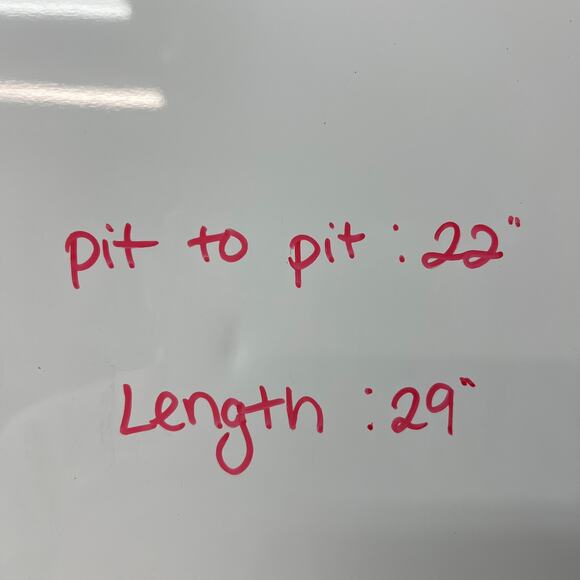 pit to pit : 22"
Length : 29"